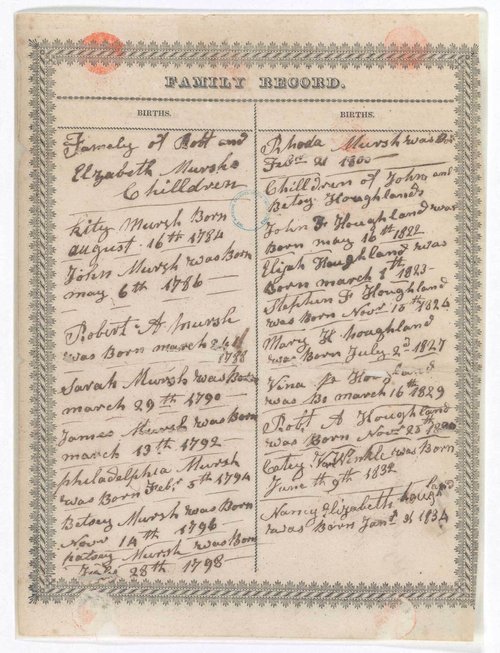 FAMILY RECORD.
BIRTHS.
Famely of Robt and
Elzabeth Mursh
Chilldren
kity Mursh Born
august 16th 1784
John Mursh was Born
may 6th 1786
Robert A Mursh
was Born march 24th
1788
Sarah Mursh was Born
march 29th 1790
James Mursh was Born
march 13th 1792
philadelphia Mursh
was Born Febr 5th 1794
Betsey Mursh was Born
Novr 14th 1796
patsey Mursh was Born
28th 1798
BIRTHS.
Rhoda Mursh was Bo
Febr 21 1800
Chilldren of John and
Betsy Houghlands
John F Houghland was
Born may 16th 1822
Elijah Houghland was
Born march 1th 1823
Stephen F Houghland
was Born Novr 10th 1824
Mary H houghland
was Born July 2d 1827
Vina
was Bo march 16th 1829
Robt A Houghland
was Born Novr 25th
Catey VanWinkle was Born
June th 9th 1832
Nancy Elizabeth
was Born Janr 31 1834